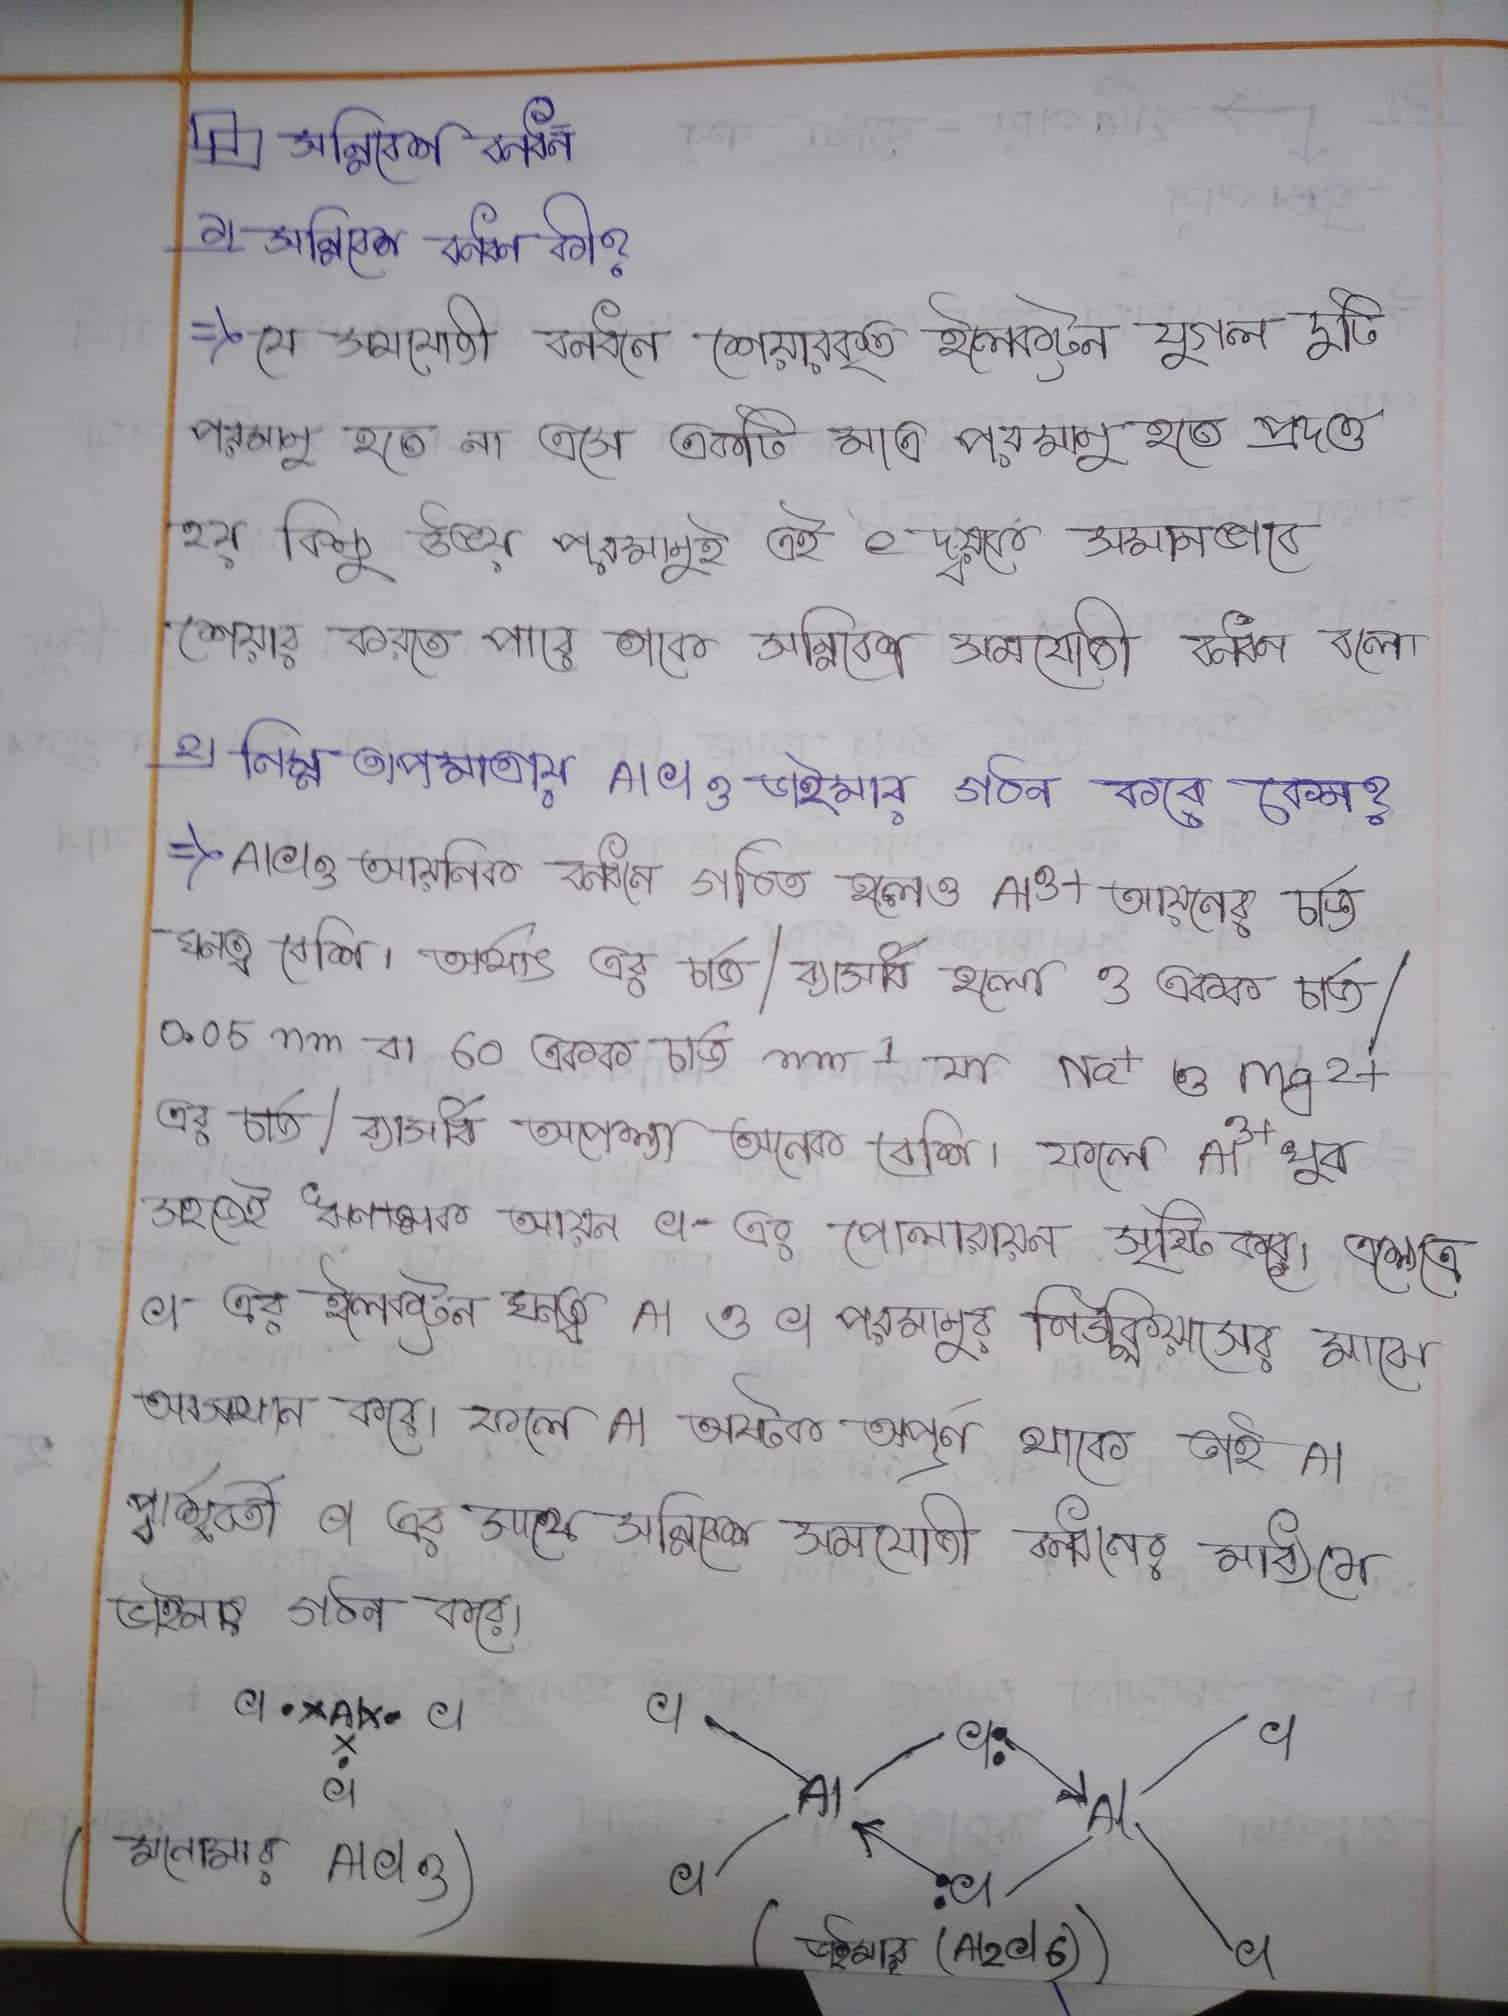 সন্নিবেশ বন্ধন
১। সন্নিবেশ বন্ধন কী?
⇒ যে সমযোজী বন্ধনে শেয়ারকৃত ইলেকট্রন যুগল দুটি
পরমানু হতে না এসে একটি মাত্র পরমানু হতে প্রদত্ত
হয় কিন্তু উভয় পরমানুই এই e দ্বয়কে সমানভাবে
শেয়ার করতে পারে তাকে সন্নিবেশ সমযোজী বন্ধন বলে।
২। নিম্ন তাপমাত্রায় AlCl3 ডাইমার গঠন করে কেন?
⇒ AlCl3 আয়নিক বন্ধনে গঠিত হলেও Al3+ আয়নের চার্জ
ঘনত্ব বেশি। অর্থাৎ এর চার্জ/ব্যাসার্ধ হলো 3 একক চার্জ/
0.05 nm বা 60 একক চার্জ nm-1 যা Na+ ও Mg2+
এর চার্জ/ব্যাসার্ধ অপেক্ষা অনেক বেশি। ফলে Al3+ খুব
সহজেই ঋণাত্মক আয়ন Cl- এর পোলারায়ন সৃষ্টি করে। এক্ষেত্রে
Cl- এর ইলেকট্রন ঘনত্ব Al ও Cl পরমানুর নিউক্লিয়াসের মাঝে
অবস্থান করে। ফলে Al অষ্টক অপূর্ণ থাকে তাই Al
পার্শ্ববর্তী Cl এর সাথে সন্নিবেশ সমযোজী বন্ধনের মাধ্যমে
ডাইমার গঠন করে।
Cl •×Al×• Cl
×
•
Cl
(মনোমার AlCl3)
Cl Cl: Cl
Al Al
Cl :Cl Cl
(ডাইমার (Al2Cl6))